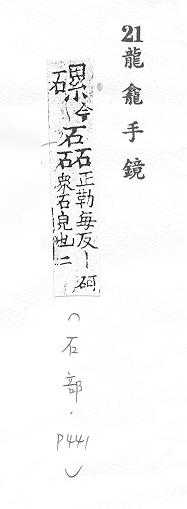 21龍龕手鏡
磥今磊正勒每反丨砢衆石皃也二
（石部．P441）